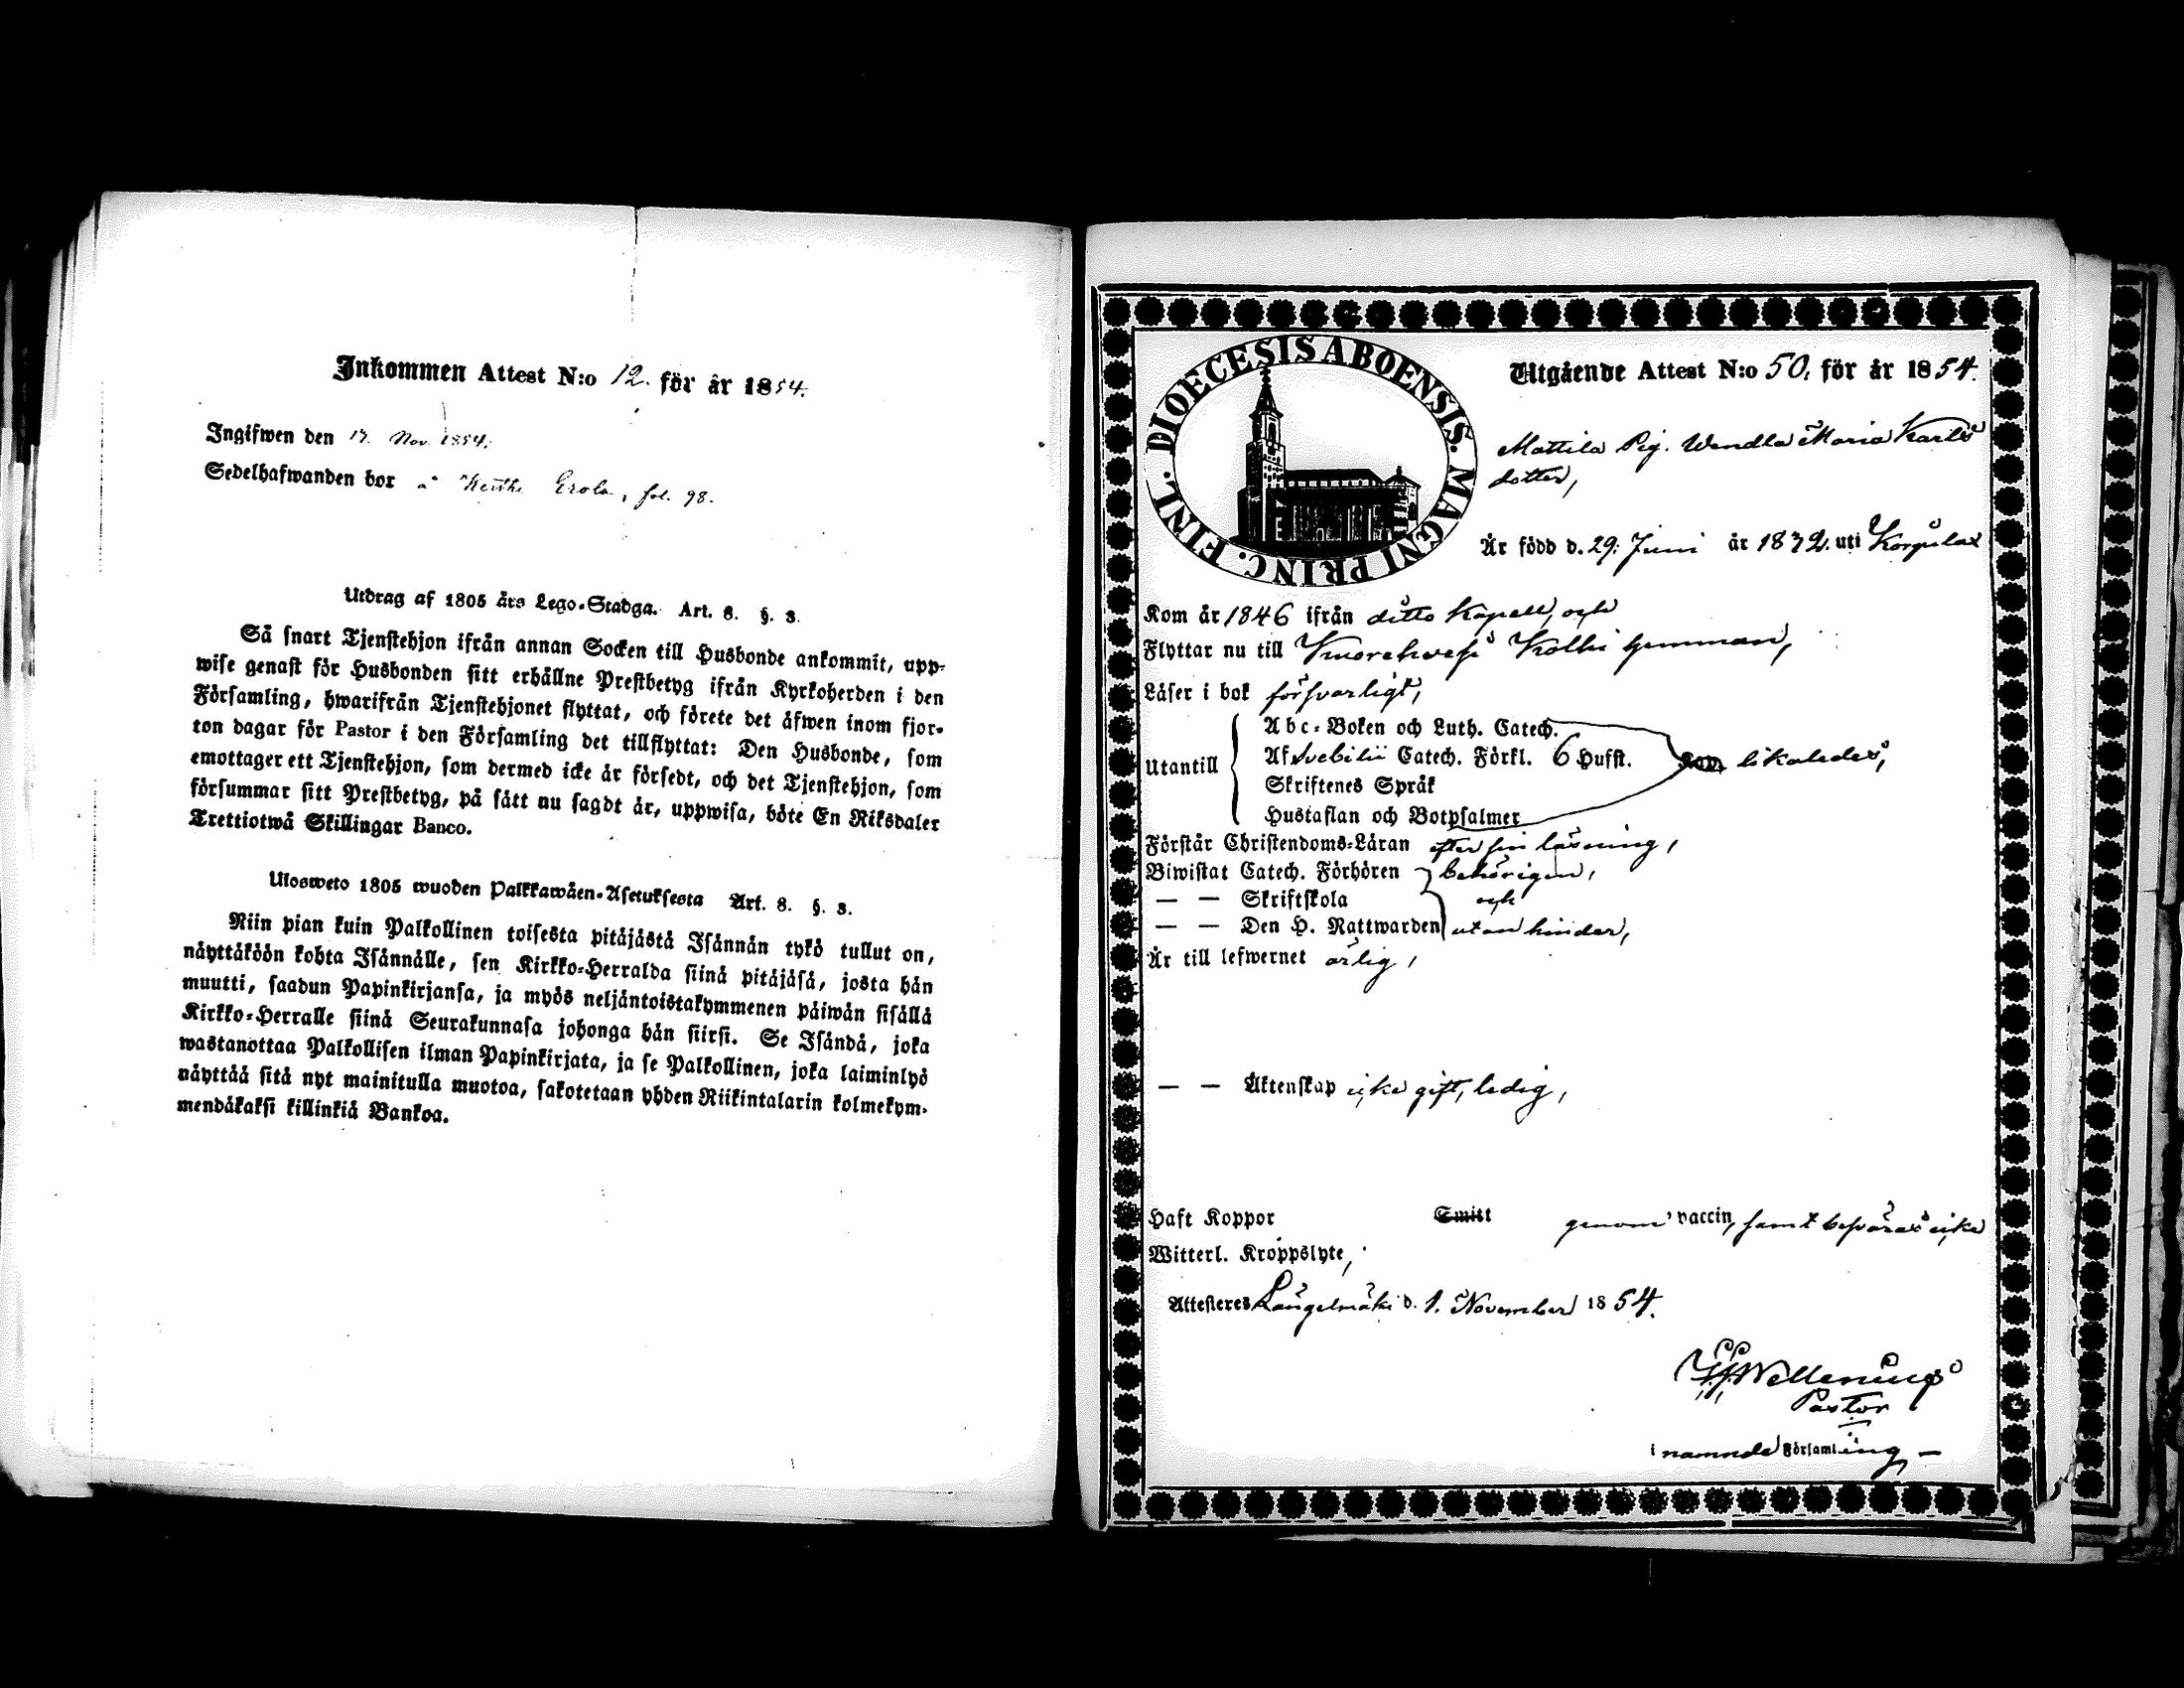 Inkommen Attest N:o 12. för år 1854.
Ingifwen den 17. Nov. 1854.
Sedelhafwanden bor å Erola, fol. 98.
Utdrag af 1805 års Lego-Stadga. Art. 8. §. 3.
Så snart Tjenstehjon ifrån annan Socken till Husbonde ankommit, upp-
wise genast för Husbonden sitt erhållne Prestbetyg ifrån Kyrkoherden i den
Församling, hwarifrån Tjenstehjonet flyttat, och förete det äfwen inom fjor-
ton dagar för Pastor i den Församling det tillflyttat: Den Husbonde, som
emottager ett Tjenstehjon, som dermed icke är försedt, och det Tjenstehjon, som
försummar sitt Prestbetyg, på sätt nu sagdt är, uppwisa, böte En Riksdaler
Trettiotwå Skillingar Banco.
Ulosweto 1805 wuoden Palkkawäen-Asetuksesta Art. 8. §. 3.
Niin pian kuin Palkollinen toisesta pitäjästä Isännän tykö tullut on,
näyttäköön kohta Isännälle, sen Kirkko-Herralda siinä pitäjäsä, josta hän
muutti, saadun Papinkirjansa, ja myös neljäntoistakymmenen päiwän sisällä
Kirkko-Herralle siinä Seurakunnasa johonga hän siirsi. Se Isändä, joka
wastanottaa Palkollisen ilman Papinkirjata, ja se Palkollinen, joka laiminlyö
näyttää sitä nyt mainitulla muotoa, sakotetaan yhden Riikintalarin kolmekym-
mendäkaksi killinkiä Bankoa.
DIOECESIS ABOENSIS. MAGNI PRINC. FINL.
Utgående Attest N:o 50. för år 1854.
Mattila Pig. Wendla Maria Karls
dotter,
Är född d. 29. Juni år 1832. uti Korpilax
Kom år 1846 ifrån ditto Kapell, och
Flyttar nu till Kuorehvesi Kolhi hemman,
Läser i bok försvarligt,
Utantill
Abc-Boken och Luth. Catech.
Af Svebilii Catech. Förkl. 6 Hufst. likaledes,
Skriftenes Språk
Hustaflan och Botpsalmer
Förstår Christendoms-Läran efter sin läsning,
Biwistat Catech. Förhören behörigen,
— — Skriftskola och
— — Den H. Nattwarden utan hinder,
Är till lefwernet ärlig,
— — Äktenskap icke gift, ledig,
Haft Koppor Smitt genom vaccin, samt besväras icke
Witterl. Kroppslyte,
Attesteres Längelmäki d. 1. November 1854.
Pastor
i namnde Församling —